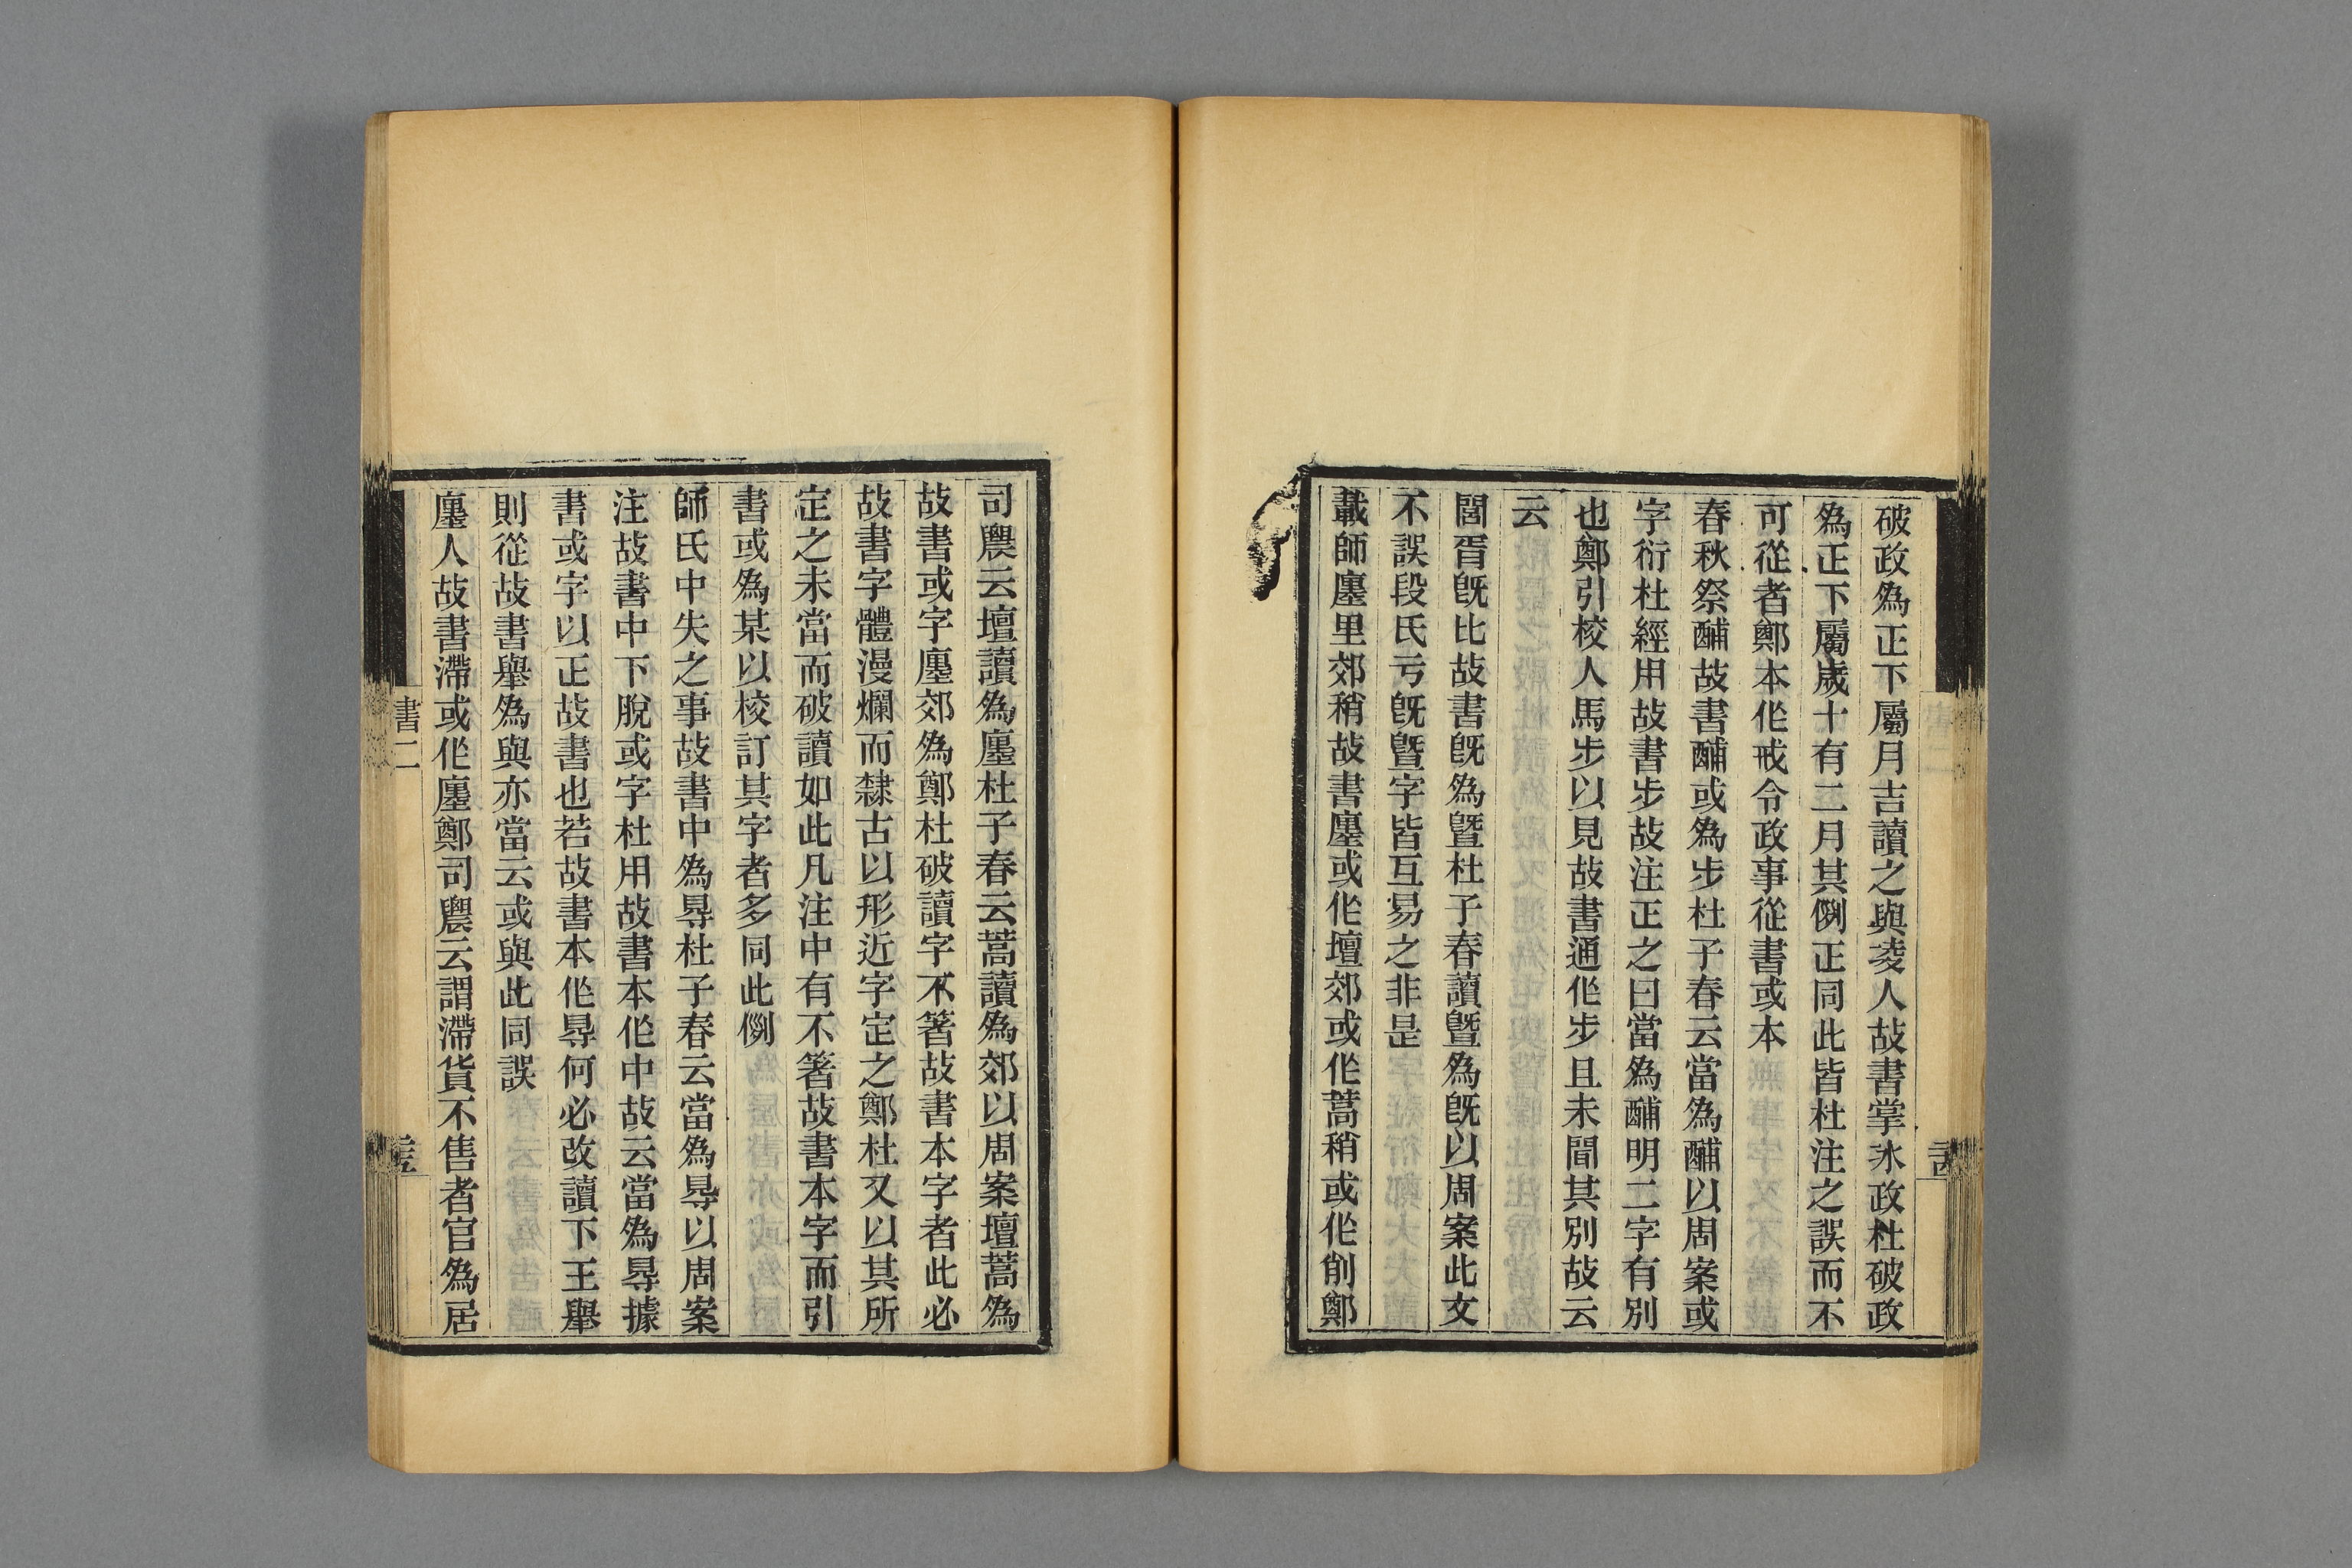 破政爲正下屬月吉讀之與凌人故書掌冰政杜破政
爲正下屬歲十有二月其例正同此皆杜注之誤而不
可從者鄭本作戒令政事從書或本
春秋祭酺故書酺或爲步杜子春云當爲酺以周案或
字衍杜經用故書步故注正之曰當爲酺明二字有別
也鄭引校人馬步以見故書通作步且未聞其別故云
云
閭胥旣比故書旣爲暨杜子春讀暨爲旣以周案此文
不誤段氏亏旣暨字皆互易之非是
載師廛里郊稍故書廛或作壇郊或作蒿稍或作削鄭
司農云壇讀爲廛杜子春云蒿讀爲郊以周案壇蒿爲
故書或字廛郊爲鄭杜破讀字不箸故書本字者此必
故書字體漫爛而隸古以形近字定之鄭杜又以其所
定之未當而破讀如此凡注中有不箸故書本字而引
書或爲某以校訂其字者多同此例
師氏中失之事故書中爲㝵杜子春云當爲㝵以周案
注故書中下脫或字杜用故書本作中故云當爲㝵據
書或字以正故書也若故書本作㝵何必改讀下王舉
則從故書舉爲與亦當云或與此同誤
廛人故書滯或作廛鄭司農云謂滯貨不售者官爲居
書二